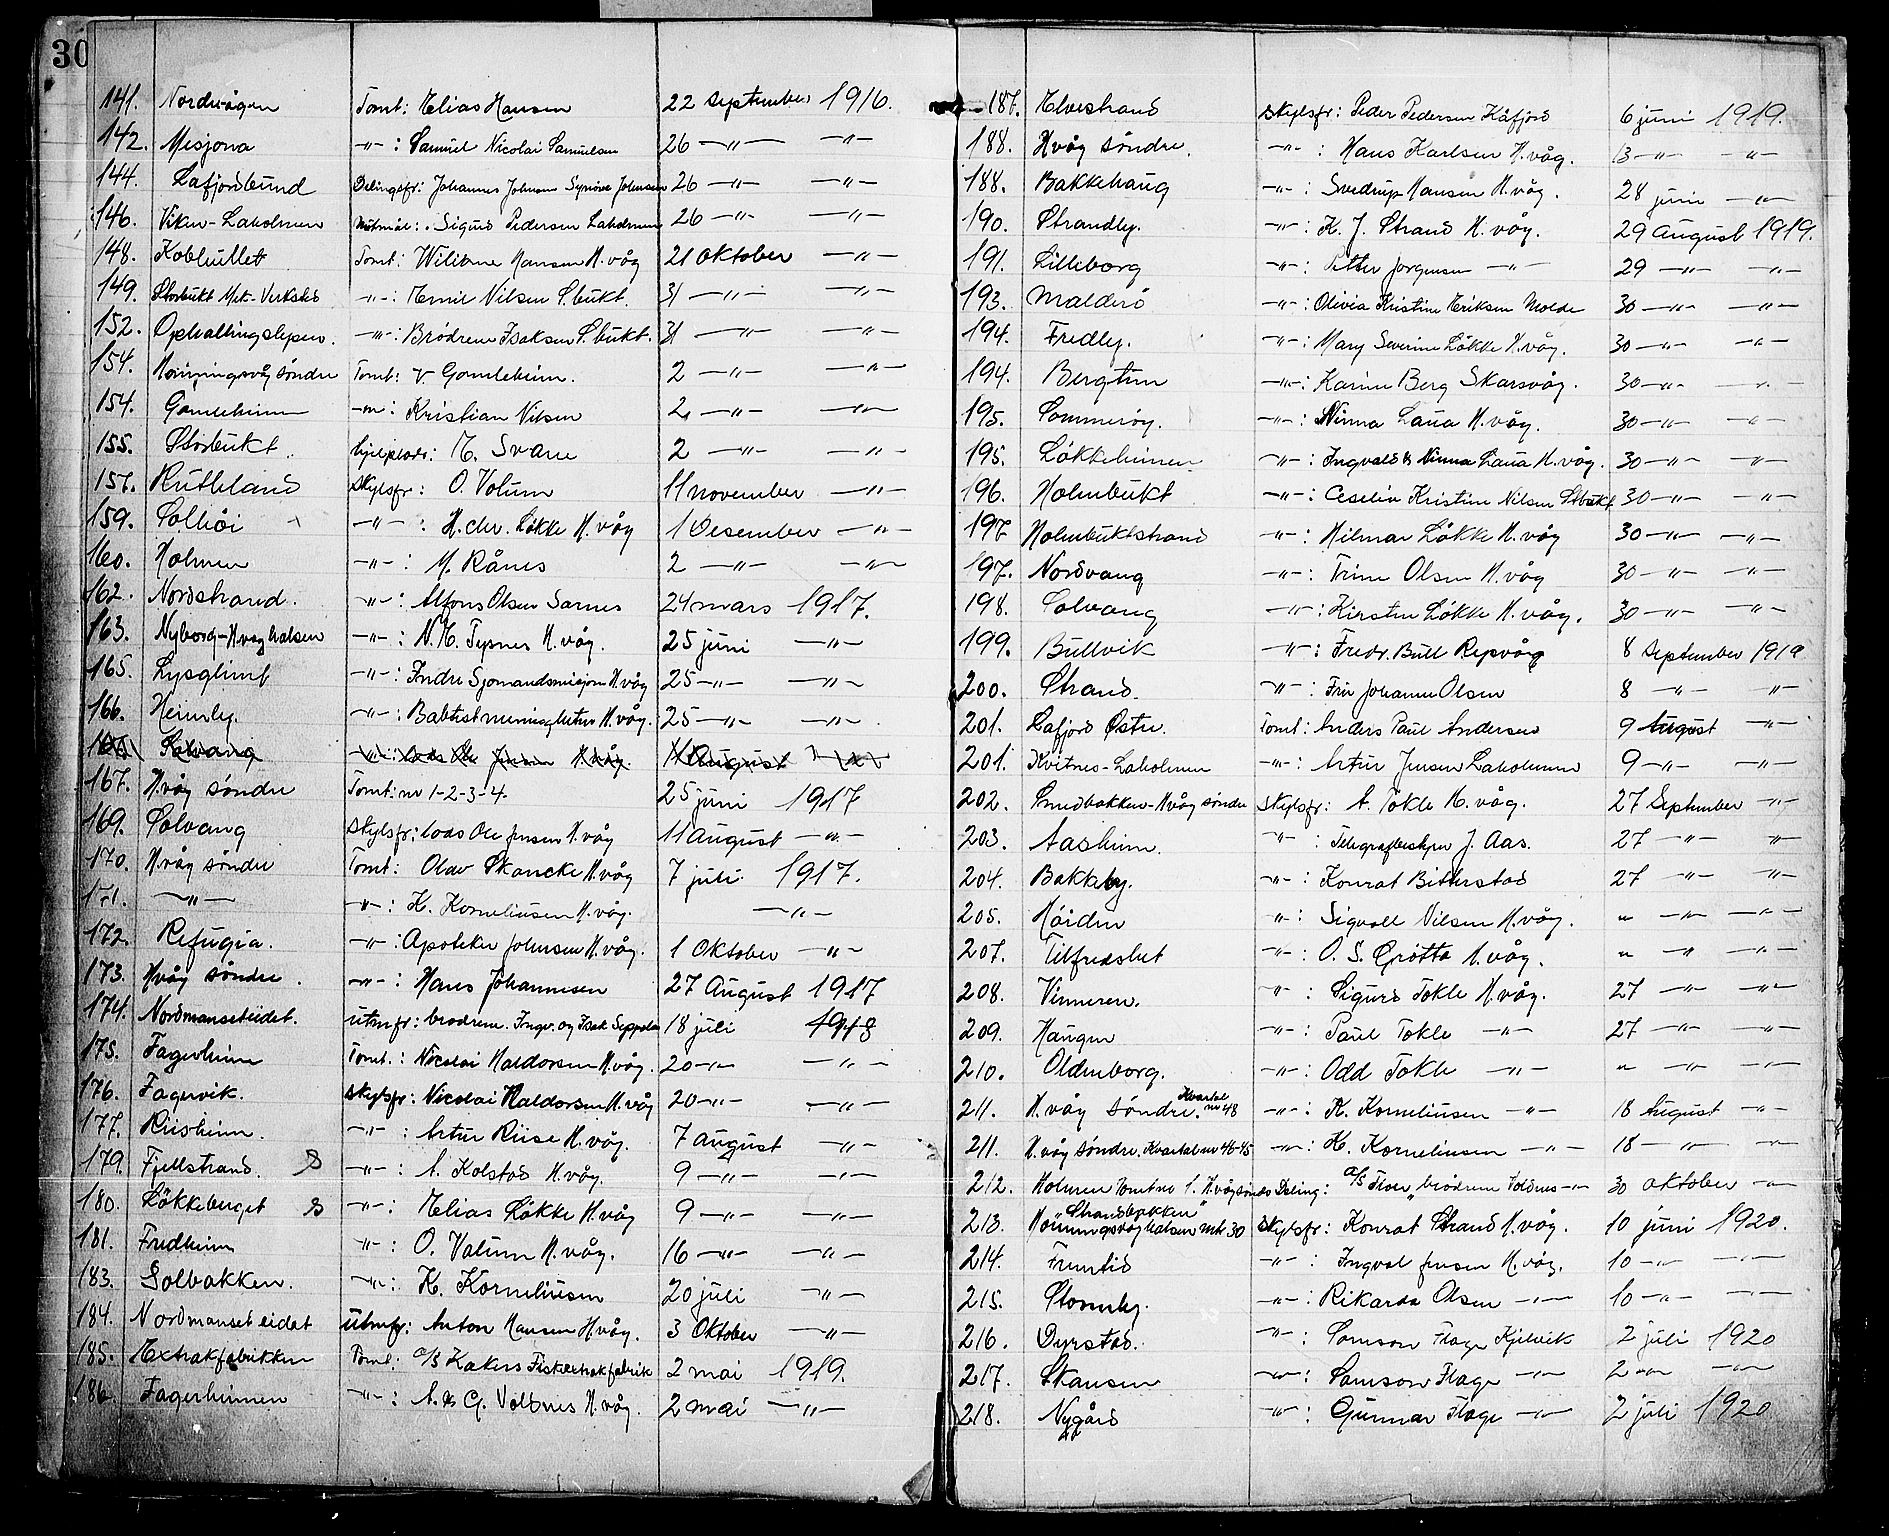 30
141. Nordvågen Tomt: Elias Hansen 22 September 1916.
142. Misjona -"- : Samuel Nicolai Samuelsen 26 -"- -"-
144. Lafjordbund Delingsfr: Johannes Johnsen Synöve Johnsen 26 -"- -"-
146. Viken-Laholmen Utmål: Sigurd Pedersen Laholmen 26 -"- -"-
148. Kobhullet Tomt: Wilhme Hansen H.våg 21 Oktober -"-
149. Storbukt Mek-Verksted -"- : Emil Nilsen S.bukt. 31 -"- -"-
152. Ophallingslepen. -"- : Brödrene Isaksen S.bukt. 31 -"- -"-
154. Honningsvåg söndre Tomt: v Gamleheim. 2 -"- -"-
154. Gamleheim -"- : Kristian Nilsen 2 -"- -"-
155. Storbukt. hjelpeds: E. Svane 2 -"- -"-
157. Rutheland Skylsfr: O. Volum 11 november -"-
159. Solhöi -"- : H. chr. Løkke H.våg 1 Desember -"-
160. Holmen -"- : M. Rånes 2 -"- -"-
162. Nordstrand. -"- : Alfons Olsen Sarnes 24 mars 1917.
163. Nyborg-H.vaghalsen -"- : N. E. Tysnes H.våg. 25 juni -"-
165. Lysglimt -"- : Indre Sjomandsmisjon H.våg 25 -"- -"-
166. Heimly. -"- : Babtistmenigheten H.våg. 25 -"- -"-
Solvang -"- : Lods Ole Jensen H.våg. 11 August -"-
167. H.våg söndre Tomt: nr 1-2-3-4- 25 juni 1917
169. Solvang Skylsfr: Lods Ole Jensen H.våg 11 August -"-
170. H.våg söndre Tomt: Olav Skancke H.våg 7 juli 1917.
171. -"- -"- : K. Korneliusen H.våg. -"-
172. Refugia. -"- : Apoteker Johnsen H.våg. 1 Oktober -"-
173. H.våg söndre. -"- : Hans Johannesen 27 August 1917
174. Nordmanseteidet. Utmfr: brodrene. Ingv. og Isak Seppola 18 juli 1918
175. Fagerheim Tomt.: Nicolai Haldorsen H.våg. 20 -"- -"-
176. Fagervik. Skylsfr: Nicolai Haldorsen H.våg 20 -"- -"-
177. Riisheim. -"- : Artur Riise H.våg. 7 august -"-
179. Fjellstrand. -"- : A. Kolstad H.våg. 9 -"- -"-
180. Løkkeberget -"- : Elias Løkke H.våg 9 -"- -"-
181. Fredheim -"- : O. Valum H.våg. 16 -"- -"-
183. Solbakken. -"- : K. Korneliusen 20 juli -"-
184. Nordmanset eidet Utmfr: Anton Hansen H.våg. 3 Oktober -"-
185. Extrakfabrikken Tomt: A/S Kakers Fiskextrakfabrik 2 mai 1919.
186. Fagerheimen -"- : A. & G. Voldnes H.våg. 2 mai -"-
187. Elvestrand Skylsfr: Peder Pedersen Kåfjord 6 juni 1919.
188. H.våg söndre. -"- : Hans Karlsen H.våg. 13 -"- -"-
188. Bakkehaug -"- : Sverdrup Hansen H.våg. 28 juni -"-
190. Strandly. -"- : K. J. Strand H.våg. 29 August 1919.
191. Lilleborg -"- : Petter Jorgensen -"- 29 -"- -"-
193. Malderö -"- : Olivia Kristine Eriksen Molde 30 -"- -"-
194. Fredly. -"- : Mary Severine Løkke H.våg. 30 -"- -"-
194. Bergtun -"- : Karine Berg Skarsvåg. 30 -"- -"-
195. Sommeröy. -"- : Ninna Laua H.våg. 30 -"- -"-
195. Løkkeheimen -"- : Ingvald & Ninna Laua H.våg. 30 -"- -"-
196. Holmbukt -"- : Ceselia Kristine Nilsen Stbukt 30 -"- -"-
197 Holmbuktstrand -"- : Hilmar Løkke H.våg 30 -"- -"-
197. Nordvang -"- : Trine Olsen H.våg 30 -"- -"-
198. Solvang -"- : Kirsten Løkke H.våg. 30 -"- -"-
199. Bullvik -"- : Fredr. Bull Repvåg 8 September 1919
200. Strand. -"- : Fru Johanne Olsen 8 -"- -"-
201. Lafjord Østre. Tomt: Anders Paul Andersen 9 August -"-
201. Kvitnes-Laholmen -"- : Artur Jensen Laholmen 9 -"- -"-
202. Smedbakken-H.våg söndre Skylsfr: A. Tokle H.våg. 27 September -"-
203. Aasheim. -"- : Telegrafbestyrer J. Aas. 27 -"- -"-
204. Bakkeby. -"- : Konrat Bitterstad 27 -"- -"-
205. Höiden -"- : Sigvall Nilsen H.våg. -"- -"- -"-
207. Tilfredshet -"- : O. S. Grötta H.våg. -"- -"- -"-
208. Vinneren. -"- : Sigurd Tokle H.våg. 27 -"- -"-
209. Haugen -"- : Paul Tokle -"- 27 -"- -"-
210. Oldenborg. -"- : Odd Tokle -"- -"- -"- -"-
211. H.våg söndre. Kvartal nr 48 -"- : K. Korneliusen -"- 18 August -"-
211. H.våg söndre. Kvartal nr 46-45 -"- : K. Korneliusen -"- 18 -"- -"-
212. Holmen Tomt no 1. H.våg söndre Deling: A/S Floer brödrene Voldnes -"- 30 oktober -"-
213. "Strandbakken" Honningsvåghalsen mtr. 30 Skylsfr: Konrat Strand H.våg. 10 juni 1920.
214. Fremtid -"- : Ingval Jensen H.våg. 10 -"- -"-
215. Stormly. -"- : Rikarda Olsen -"- 10 -"- -"-
216. Dyrstad. -"- : Samson Flage Kjelvik 2 juli 1920
217. Skansen -"- : Samson Flage -"- 2 -"- -"-
218. Nygård -"- : Gunnar Flage -"- 2 juli 1920